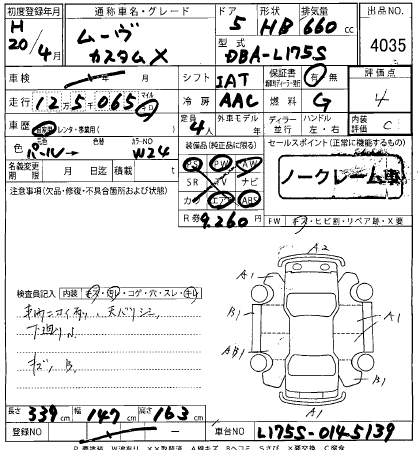 初度登録年月 通称車名・グレード ドア 形状 排気量 出品NO
H20/4月 ムーヴ カスタムX 5 HB 660 cc 4035
型式 DBA-L175S
車検 年 月 シフト IAT 保証書 有 無 燃料 G 評価点 4
走行 12万5千065 マイル キロ 冷房 AAC
車歴 自家用 レンタ・事業用( ) 定員 4人 外車モデル 年 ディーラー 並行 ハンドル 左・右 内装評価 C
色 パール 色替 カラーNO W24
装備品(純正品に限る) セールスポイント(正常に機能するもの)
PS PW AW
SR TV ナビ
カワ エアB ABS
ノークレーム車
名義変更期限 月 日迄 積載量 t
R券 9.260 円
注意事項(欠品・修復・不具合箇所および状態)
FW キズ・ヒビ割・リペア跡・X要
検査員記入 内装 キズ・汚レ・コゲ・穴・スレ・キレ
下廻りS
キズ B
A2
A1
B1
AB1
A1
B1
A1
長さ 339 cm 幅 147 cm 高さ 163 cm
登録NO 車台NO L175S-0145139